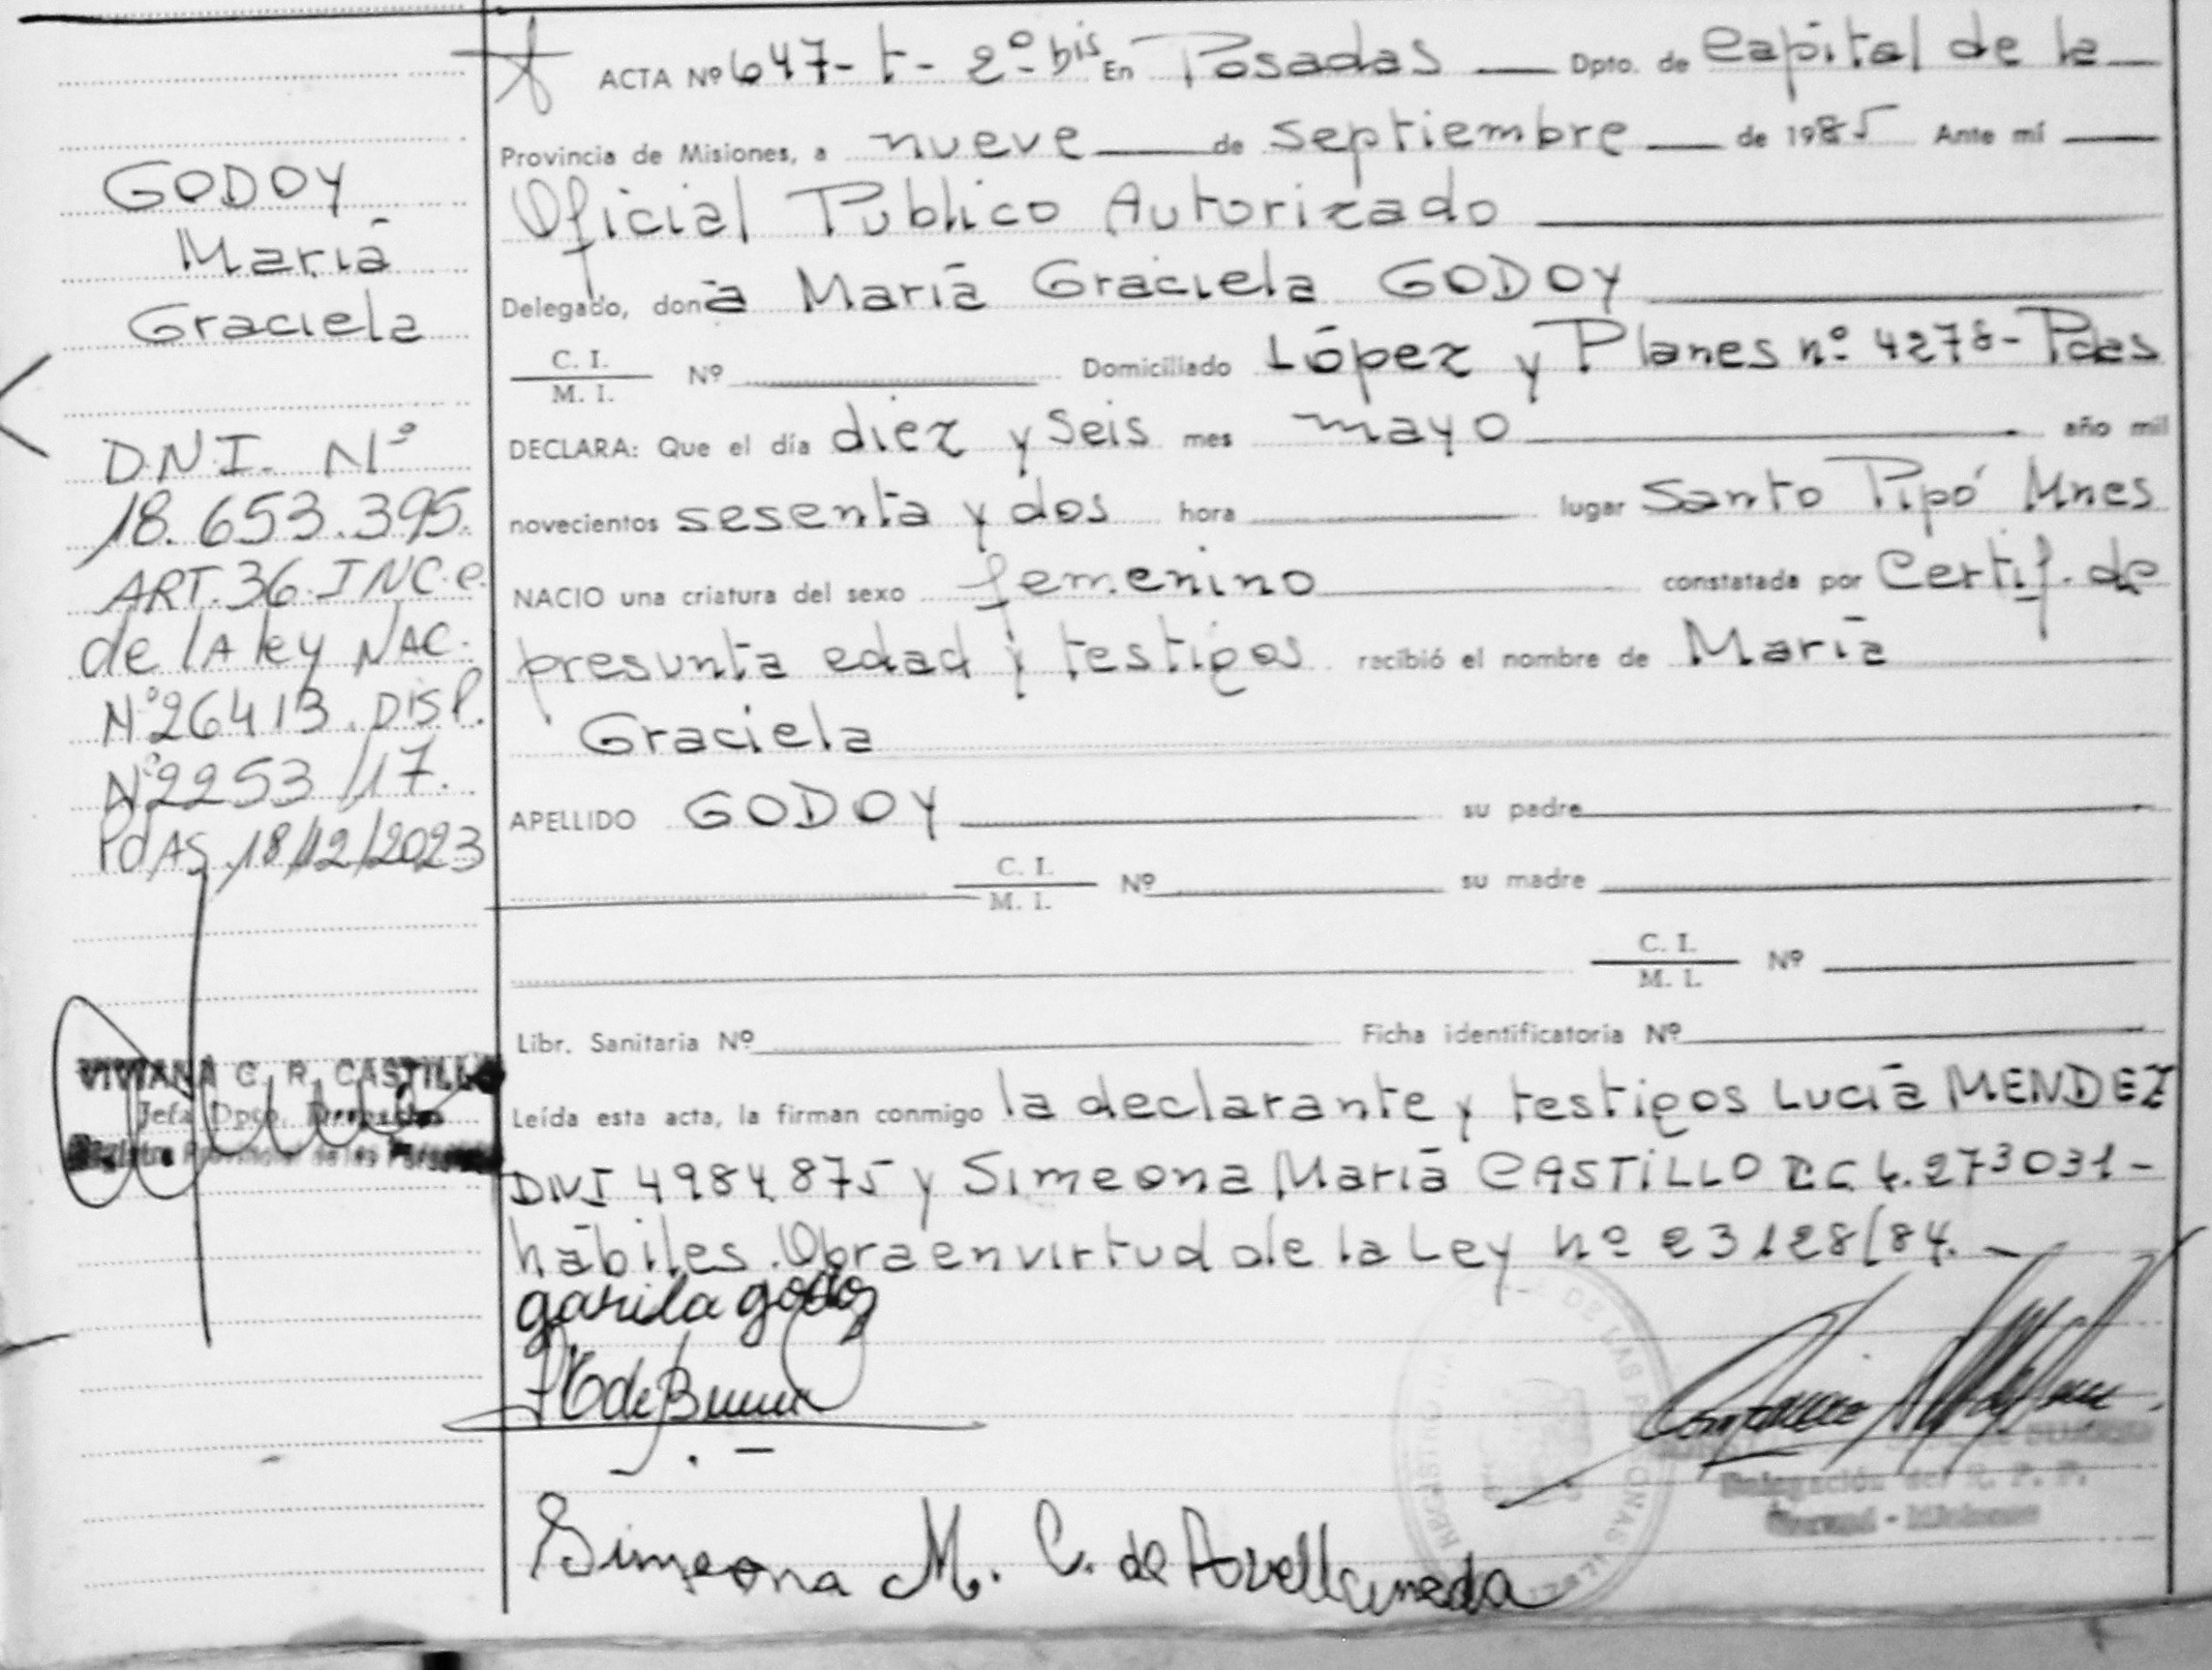 GODOY
María
Graciela
DNI. Nº
18.653.395.
ART.36.INC.e
de lA ley NAC.
Nº26413.DISP.
Nº2253/17.
PdAS,18/12/2023
VIVIANA C. R. CASTILLO
Jefa Dpto.
Registro Provincial de las Personas
ACTA Nº 647- t- 2º- bis En Posadas Dpto. de Capital de la
Provincia de Misiones, a nueve de septiembre de 1985 Ante mí
Oficial Publico Autorizado
Delegado, dona María Graciela GODOY
C. I.
M. I. Nº Domiciliado López y Planes nº 4278- Pdas
DECLARA: Que el día diez y seis mes mayo año mil
novecientos sesenta y dos hora lugar Santo Pipó Mnes
NACIO una criatura del sexo femenino constatada por Certif. de
presunta edad y testigos recibió el nombre de María
Graciela
APELLIDO GODOY su padre
C. I.
M. I. Nº su madre
C. I.
M. I. Nº
Libr. Sanitaria Nº Ficha identificatoria Nº
Leída esta acta, la firman conmigo la declarante y testigos Lucía MENDEZ
DNI 4984.875 y Simeona María CASTILLO LC 4.273031-
hábiles. Obra en virtud de la Ley nº 23128/84.
garila godoy
Simeona M. C. de Avellaneda
REGISTRO DE LAS PERSONAS
Delegación del R. P. P.